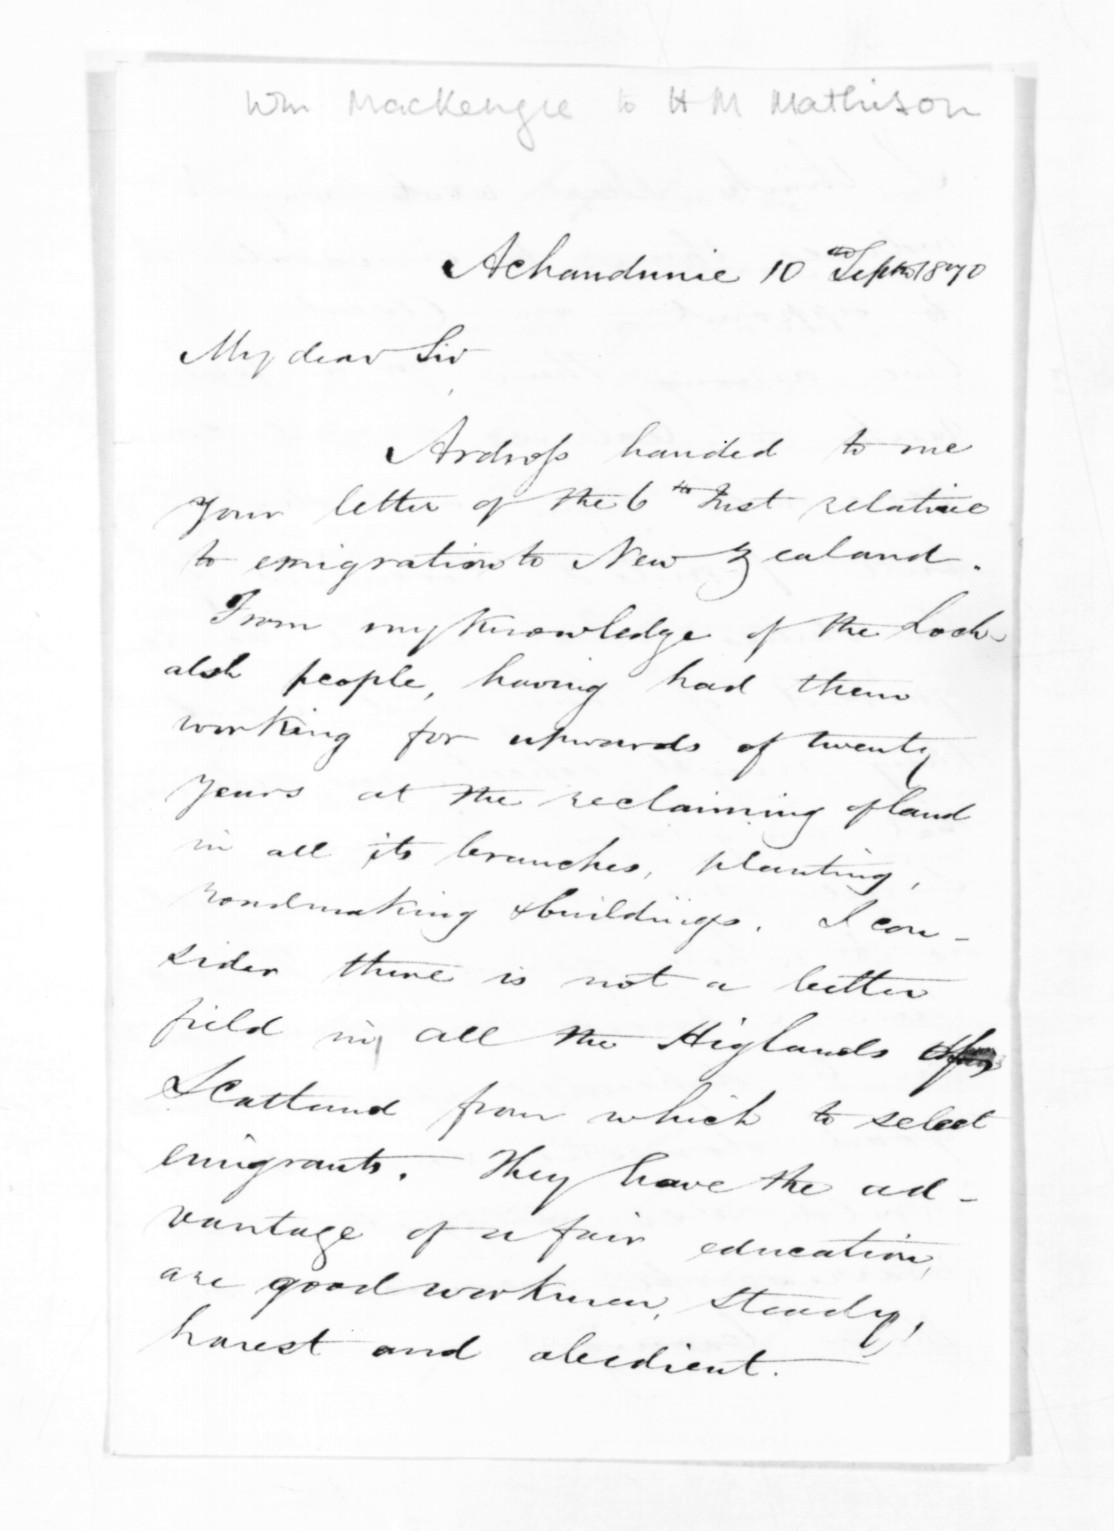 Wm Mackenzie to H M Mathison
Achandunie 10th Septr 1870
My dear Sir
Ardross handed to me
your letter of the 6th Inst relative
to emigration to New Zealand.
From my knowledge of the Loch-
alsh people, having had them
working for upwards of twenty
years at the reclaiming of land
in all its branches, planting,
roadmaking & buildings. I con-
sider there is not a better
field in all the Higlands
Scotland from which to select
emigrants. They have the ad-
vantage of a fair education,
are good workmen, steady,
honest and obedient.